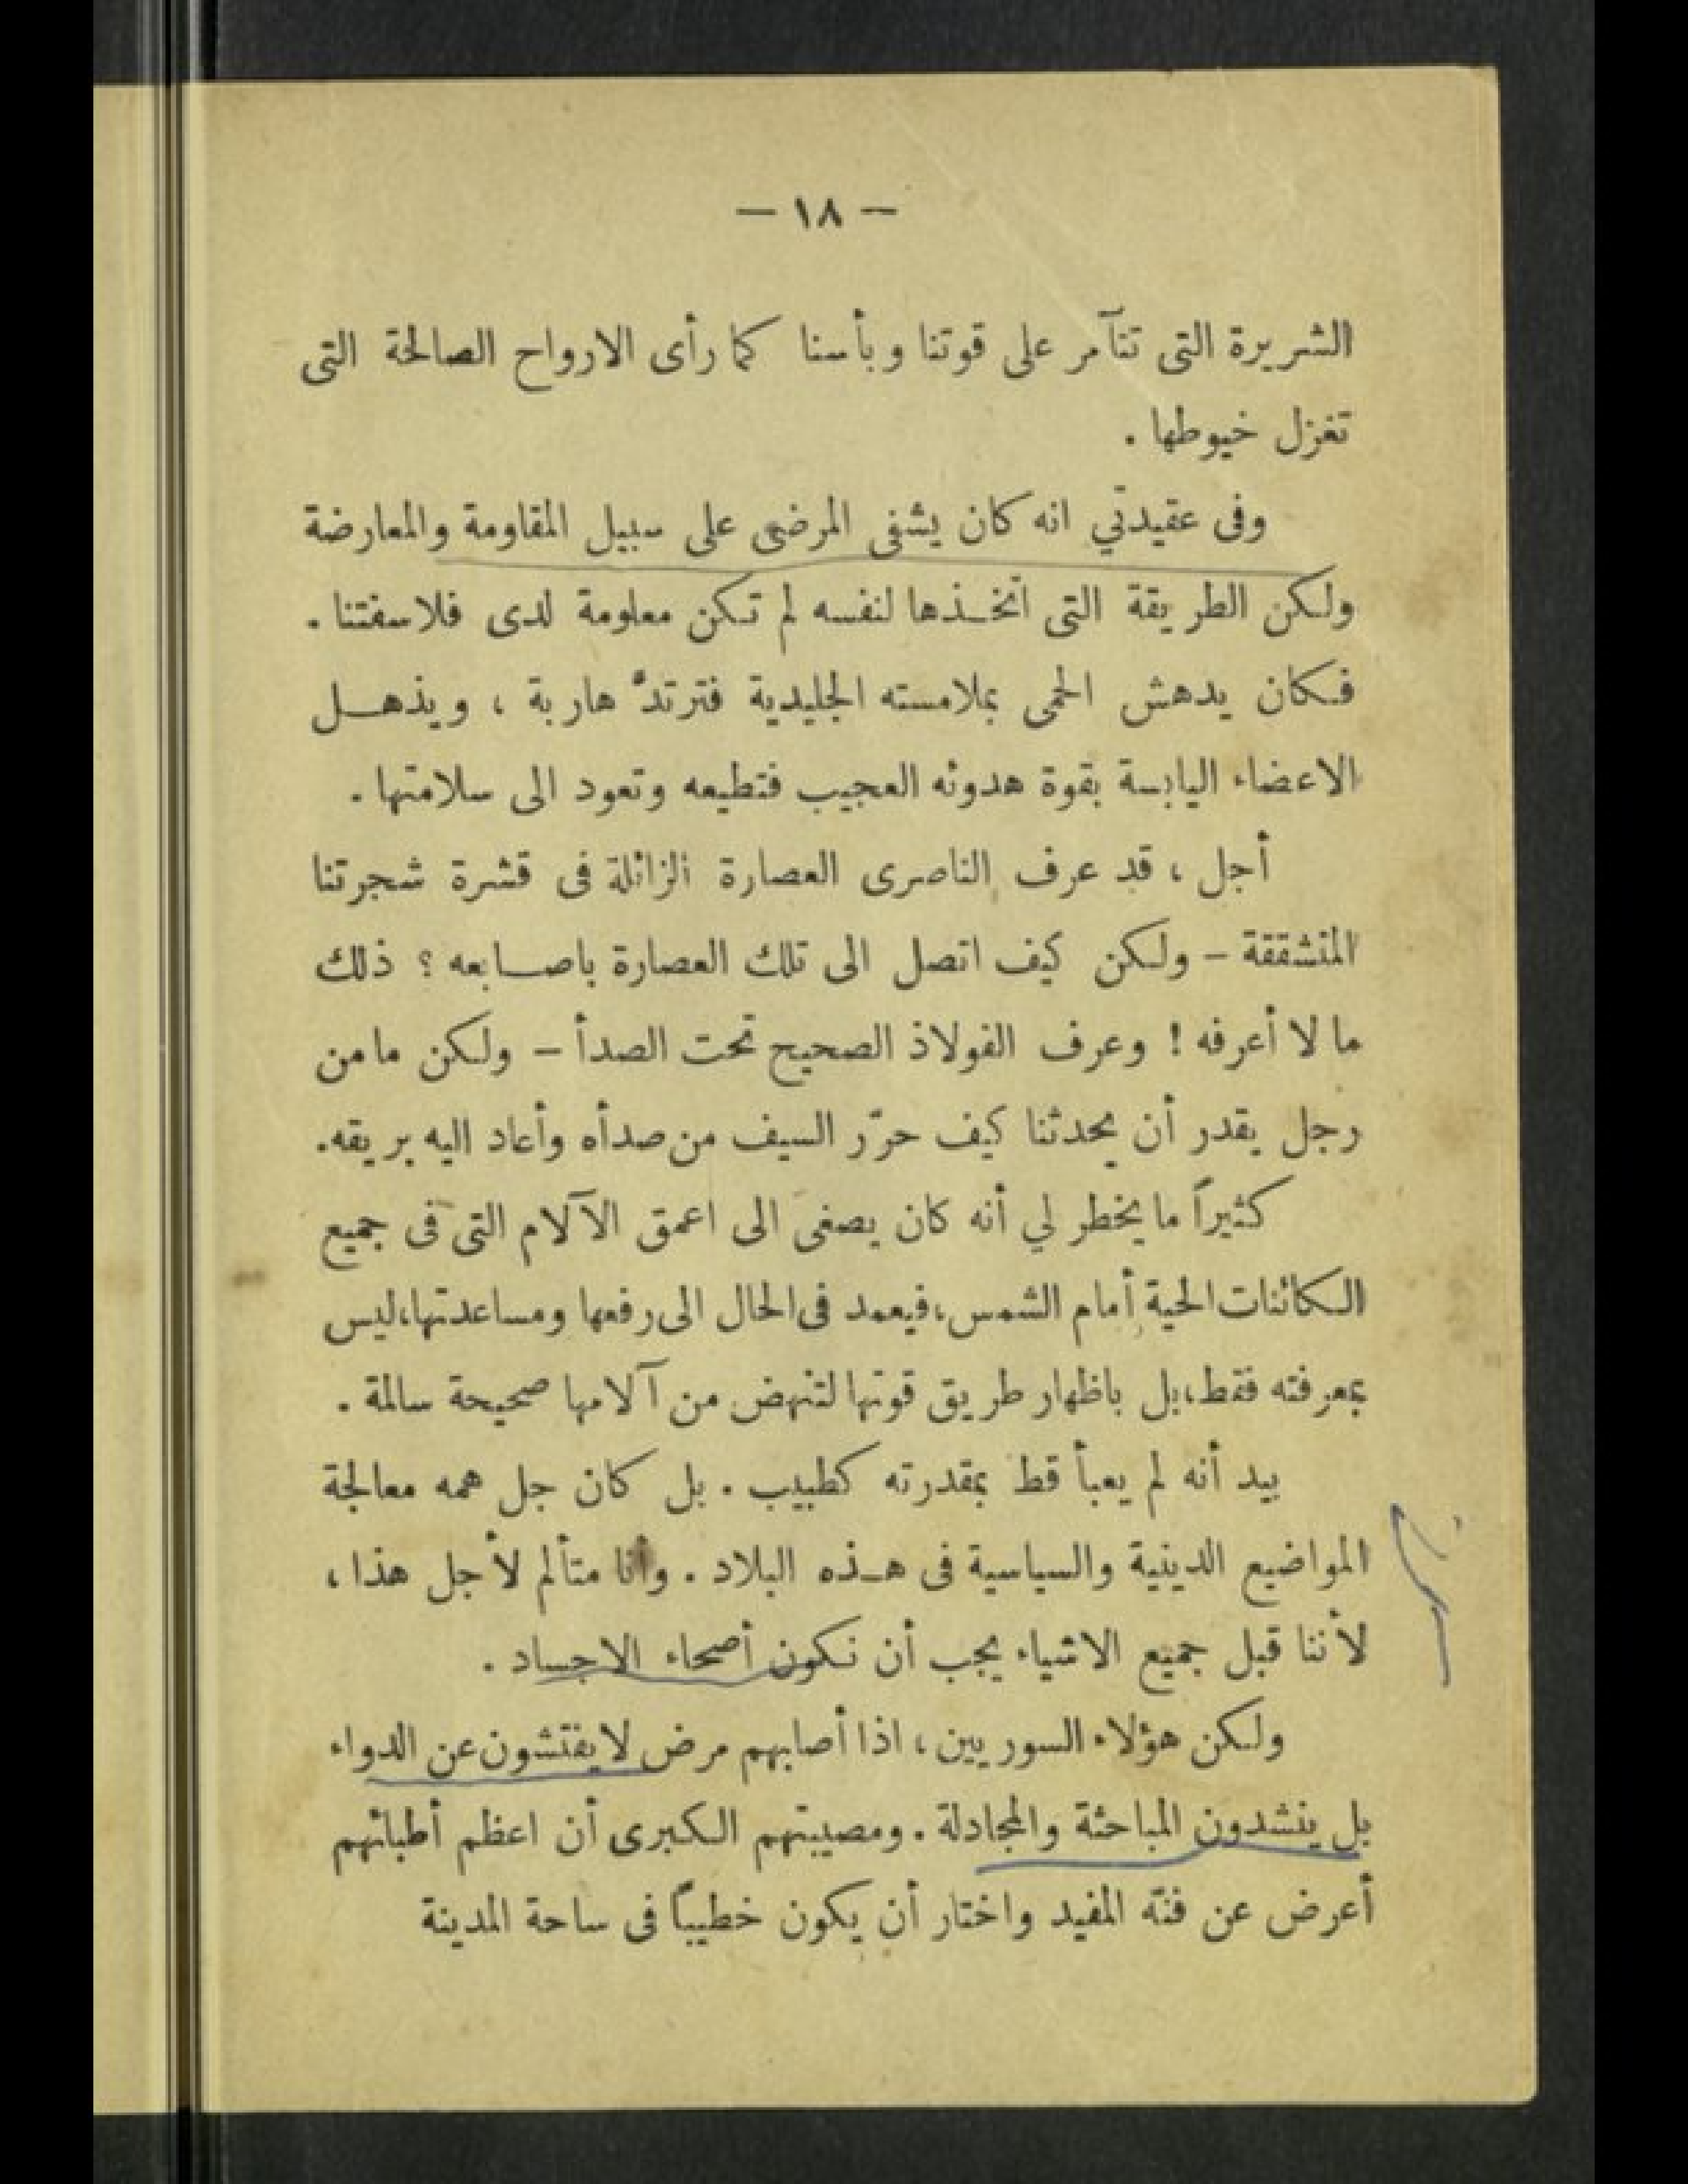 — ١٨ —
الشريرة التى تتآمر على قوتنا وبأسنا كما رأى الارواح الصالحة التى
تغزل خيوطها .
وفى عقيدتي انه كان يشفى المرضى على سبيل المقاومة والمعارضة
ولكن الطريقة التى اتخذها لنفسه لم تكن معلومة لدى فلاسفتنا .
فكان يدهش الحمى بملامسته الجليدية فترتدّ هاربة ، ويذهل
الاعضاء اليابسة بقوة هدوئه العجيب فتطيعه وتعود الى سلامتها .
أجل ، قد عرف الناصرى العصارة الزائلة فى قشرة شجرتنا
المتشققة – ولكن كيف اتصل الى تلك العصارة باصابعه ؟ ذلك
ما لا أعرفه ! وعرف الفولاذ الصحيح تحت الصدأ – ولكن ما من
رجل يقدر أن يحدثنا كيف حرّر السيف من صدأه وأعاد اليه بريقه.
كثيراً ما يخطر لي أنه كان يصغى الى اعمق الآلام التى فى جميع
الكائنات الحية أمام الشمس، فيعمد فى الحال الى رفعها ومساعدتها، ليس
بمعرفته فقط، بل باظهار طريق قوتها لتنهض من آلامها صحيحة سالمة .
بيد أنه لم يعبأ قط بمقدرته كطبيب . بل كان جل همه معالجة
المواضيع الدينية والسياسية فى هذه البلاد . وأنا متألم لأجل هذا ،
لأننا قبل جميع الاشياء يجب أن نكون أصحاء الاجساد .
ولكن هؤلاء السوريين ، اذا أصابهم مرض لا يفتشون عن الدواء
بل ينشدون المباحثة والمجادلة . ومصيبتهم الكبرى أن اعظم أطبائهم
أعرض عن فنّه المفيد واختار أن يكون خطيباً فى ساحة المدينة